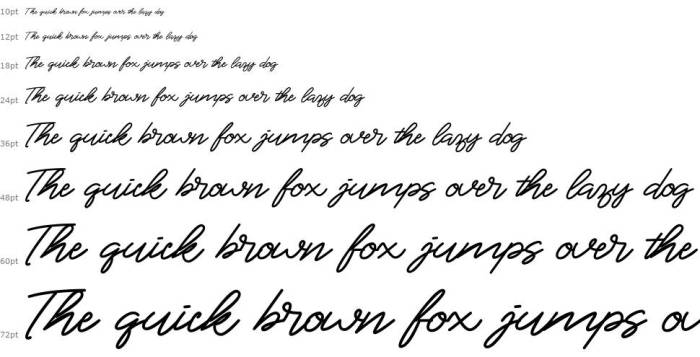 10pt The quick brown fox jumps over the lazy dog
12pt The quick brown fox jumps over the lazy dog
18pt The quick brown fox jumps over the lazy dog
24pt The quick brown fox jumps over the lazy dog
36pt The quick brown fox jumps over the lazy dog
48pt The quick brown fox jumps over the lazy dog
60pt The quick brown fox jumps over the
72pt The quick brown fox jumps o